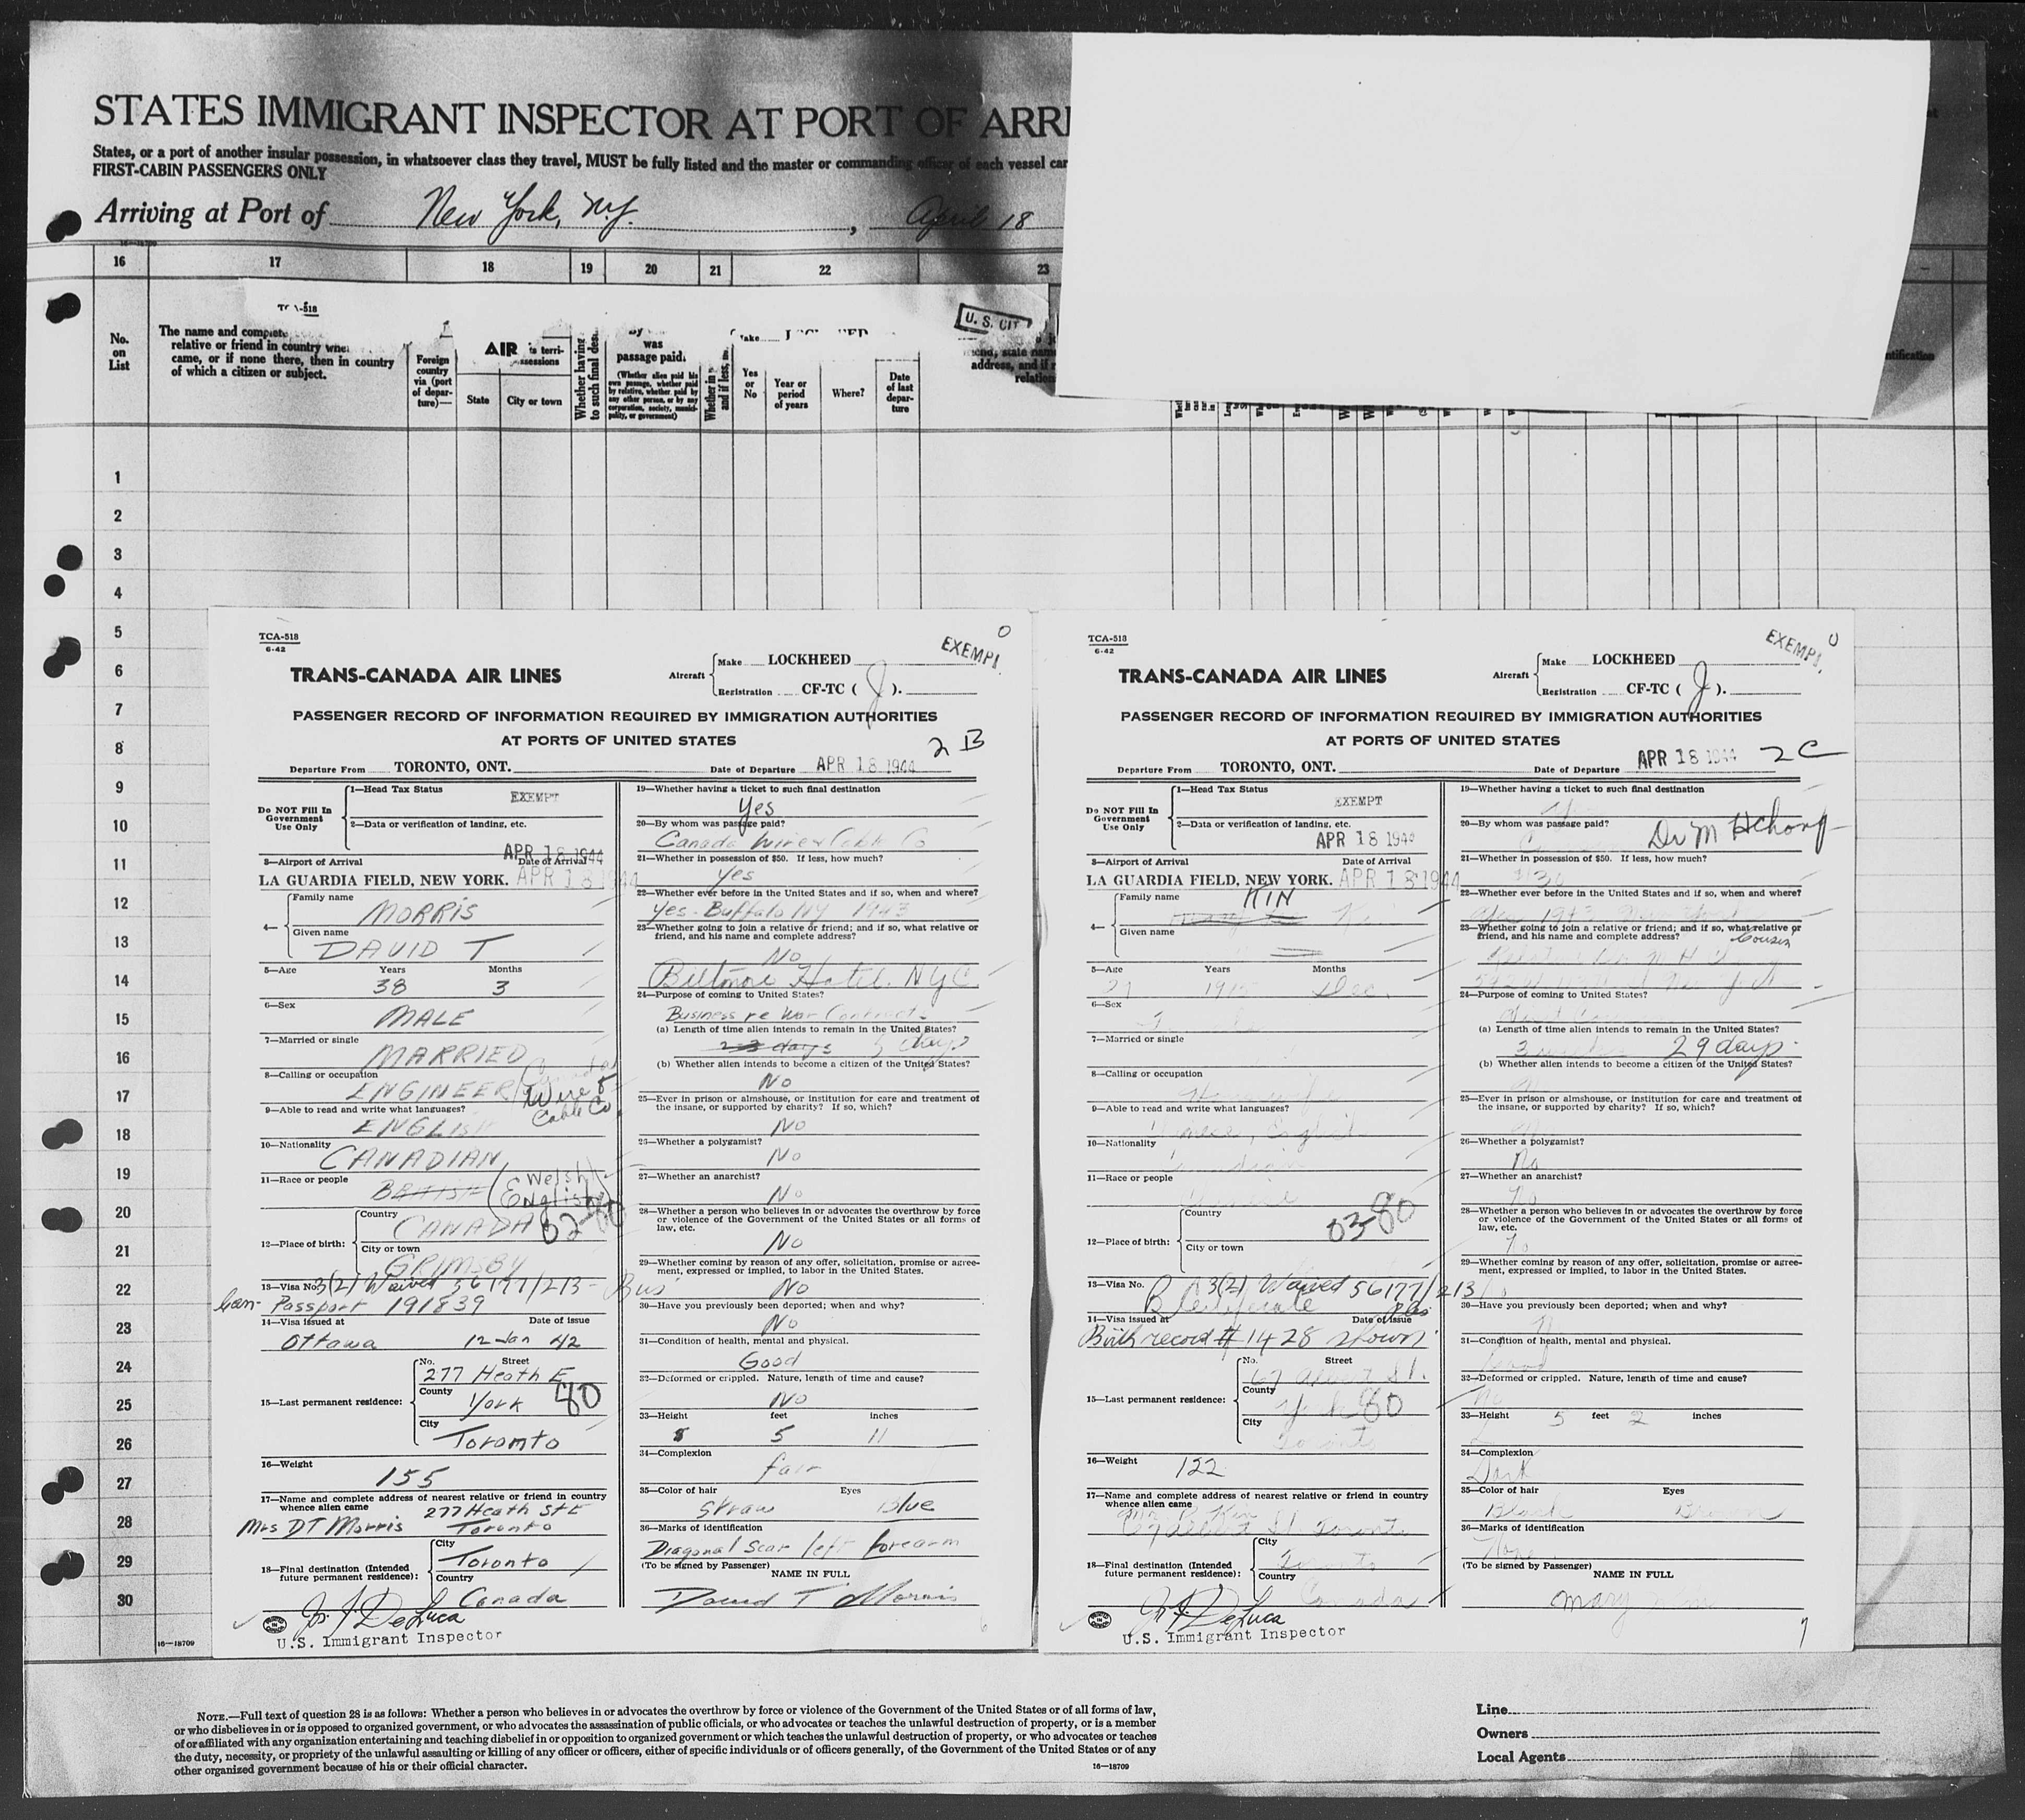 STATES IMMIGRANT INSPECTOR AT PORT OF ARRI
States, or a port of another insular possession, in whatsoever class they travel, MUST be fully listed and the master or commanding officer of each vessel car
FIRST-CABIN PASSENGERS ONLY
Arriving at Port of New York, N.Y. , April 18
16 17 18 19 20 21 22 23
U. S. CIT
No. on List
The name and complete
relative or friend in country whe
came, or if none there, then in country
of which a citizen or subject.
Foreign country via (port of departure)—
AIR
State
City or town
Whether having
to such final des
was
passage paid.
(Whether alien paid his own passage, whether paid by relative, whether paid by any other person, or by any corporation, society, municipality, or government)
Whether in
and if less,
Yes or No
Year or period of years
Where?
Date of last departure
1
2
3
4
5
6
7
8
9
10
11
12
13
14
15
16
17
18
19
20
21
22
23
24
25
26
27
28
29
30
16—18709
TCA-518
6-42
EXEMPT
TRANS-CANADA AIR LINES
Aircraft
Make LOCKHEED
Registration CF-TC ( J ).
PASSENGER RECORD OF INFORMATION REQUIRED BY IMMIGRATION AUTHORITIES
AT PORTS OF UNITED STATES
2 B
Departure From TORONTO, ONT.
Date of Departure APR 18 1944
Do NOT Fill In Government Use Only
1—Head Tax Status EXEMPT
2—Data or verification of landing, etc.
APR 18 1944
3—Airport of Arrival Date of Arrival
LA GUARDIA FIELD, NEW YORK. APR 18 1944
4— Family name MORRIS
Given name DAVID T
5—Age Years Months
38 3
6—Sex
MALE
7—Married or single
MARRIED
8—Calling or occupation
ENGINEER Canada Wire & Cable Co.
9—Able to read and write what languages?
ENGLISH
10—Nationality
CANADIAN
11—Race or people
BRITISH (Welsh English)
12—Place of birth: Country CANADA
City or town GRIMSBY
13—Visa No. 3(2) Waived 56177/213- Bus
Can- Passport 191839
14—Visa issued at Date of issue
Ottawa 12 Jan 42
15—Last permanent residence:
No. Street
277 Heath E
County
York 80
City
Toronto
16—Weight
155
17—Name and complete address of nearest relative or friend in country whence alien came
277 Heath St E
Mrs DT Morris Toronto
18—Final destination (Intended future permanent residence):
City Toronto
Country Canada
DeLuca
U.S. Immigrant Inspector
19—Whether having a ticket to such final destination
Yes
20—By whom was passage paid?
Canada Wire & Cable Co
21—Whether in possession of $50. If less, how much?
Yes
22—Whether ever before in the United States and if so, when and where?
Yes - Buffalo NY 1943
23—Whether going to join a relative or friend; and if so, what relative or friend, and his name and complete address?
No
Biltmore Hotel. NYC
24—Purpose of coming to United States?
Business re War Contracts
(a) Length of time alien intends to remain in the United States?
2-3 days 5 days
(b) Whether alien intends to become a citizen of the United States?
No
25—Ever in prison or almshouse, or institution for care and treatment of the insane, or supported by charity? If so, which?
No
26—Whether a polygamist?
No
27—Whether an anarchist?
No
28—Whether a person who believes in or advocates the overthrow by force or violence of the Government of the United States or all forms of law, etc.
No
29—Whether coming by reason of any offer, solicitation, promise or agreement, expressed or implied, to labor in the United States.
No
30—Have you previously been deported; when and why?
No
31—Condition of health, mental and physical.
Good
32—Deformed or crippled. Nature, length of time and cause?
No
33—Height feet inches
5 11
34—Complexion
fair
35—Color of hair Eyes
Straw Blue
36—Marks of identification
Diagonal Scar left forearm
(To be signed by Passenger)
NAME IN FULL
David T Morris
TCA-518
6-42
EXEMPT
TRANS-CANADA AIR LINES
Aircraft
Make LOCKHEED
Registration CF-TC ( J ).
PASSENGER RECORD OF INFORMATION REQUIRED BY IMMIGRATION AUTHORITIES
AT PORTS OF UNITED STATES
2 C
Departure From TORONTO, ONT.
Date of Departure APR 18 1944
Do NOT Fill In Government Use Only
1—Head Tax Status EXEMPT
2—Data or verification of landing, etc.
APR 18 1944
3—Airport of Arrival Date of Arrival
LA GUARDIA FIELD, NEW YORK. APR 18 1944
4— Family name KIN
Given name
5—Age Years Months
1915 Dec.
6—Sex
7—Married or single
8—Calling or occupation
9—Able to read and write what languages?
10—Nationality
11—Race or people
12—Place of birth: Country
City or town
13—Visa No. 3(2) Waived 56177/213
B Certificate
14—Visa issued at Date of issue
Birth record # 1428 shown.
15—Last permanent residence:
No. Street
67 Albert St.
County
York 80
City
Toronto
16—Weight
122
17—Name and complete address of nearest relative or friend in country whence alien came
67 Albert St Toronto
18—Final destination (Intended future permanent residence):
City Toronto
Country Canada
DeLuca
U.S. Immigrant Inspector
19—Whether having a ticket to such final destination
20—By whom was passage paid?
21—Whether in possession of $50. If less, how much?
22—Whether ever before in the United States and if so, when and where?
23—Whether going to join a relative or friend; and if so, what relative or friend, and his name and complete address?
Cousin
24—Purpose of coming to United States?
(a) Length of time alien intends to remain in the United States?
29 days.
(b) Whether alien intends to become a citizen of the United States?
25—Ever in prison or almshouse, or institution for care and treatment of the insane, or supported by charity? If so, which?
26—Whether a polygamist?
No
27—Whether an anarchist?
No
28—Whether a person who believes in or advocates the overthrow by force or violence of the Government of the United States or all forms of law, etc.
29—Whether coming by reason of any offer, solicitation, promise or agreement, expressed or implied, to labor in the United States.
30—Have you previously been deported; when and why?
31—Condition of health, mental and physical.
Good
32—Deformed or crippled. Nature, length of time and cause?
No
33—Height 5 feet 2 inches
34—Complexion
Dark
35—Color of hair Eyes
Black Brown
36—Marks of identification
None
(To be signed by Passenger)
NAME IN FULL
Mary
NOTE.—Full text of question 28 is as follows: Whether a person who believes in or advocates the overthrow by force or violence of the Government of the United States or of all forms of law,
or who disbelieves in or is opposed to organized government, or who advocates the assassination of public officials, or who advocates or teaches the unlawful destruction of property, or is a member
of or affiliated with any organization entertaining and teaching disbelief in or opposition to organized government or which teaches the unlawful destruction of property, or who advocates or teaches
the duty, necessity, or propriety of the unlawful assaulting or killing of any officer or officers, either of specific individuals or of officers generally, of the Government of the United States or of any
other organized government because of his or their official character.
16—18709
Line
Owners
Local Agents